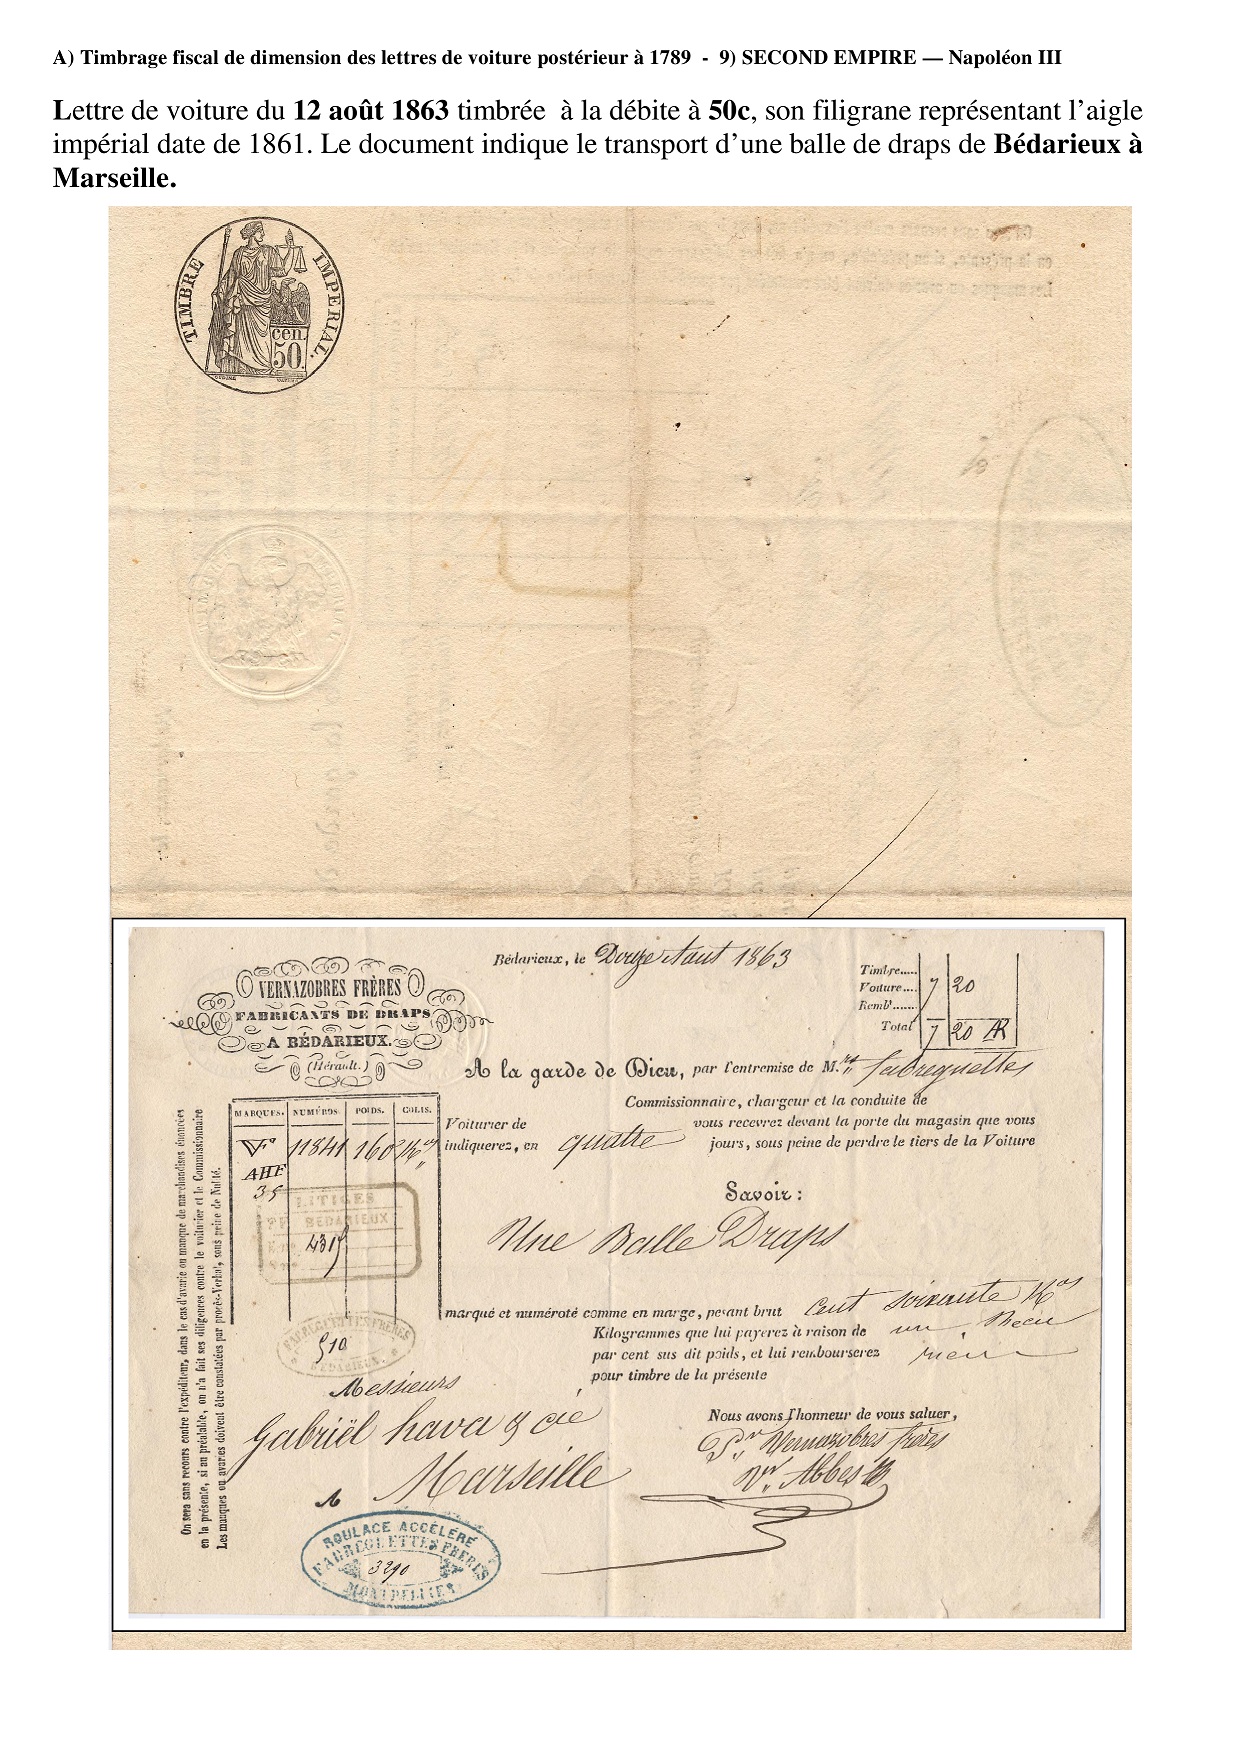 A) Timbrage fiscal de dimension des lettres de voiture postérieur à 1789 - 9) SECOND EMPIRE — Napoléon III
Lettre de voiture du 12 août 1863 timbrée à la débite à 50c, son filigrane représentant l’aigle
impérial date de 1861. Le document indique le transport d’une balle de draps de Bédarieux à
Marseille.
TIMBRE IMPERIAL.
cen.
50.
Bédarieux, le Douze Aout 1863
VERNAZOBRES FRÈRES
FABRICANTS DE DRAPS
A BÉDARIEUX.
(Hérault.)
Timbre.....
Voiture.... 7 20
Remb.t.......
Total 7 20
A la garde de Dieu, par l'entremise de M.rs Fabreguettes
Commissionnaire, chargeur et la conduite de
Voiturier de vous recevrez devant la porte du magasin que vous
indiquerez, en quatre jours, sous peine de perdre le tiers de la Voiture
MARQUES. NUMÉROS. POIDS. COLIS.
11841 160
AHF
35
LITIGES
BÉDARIEUX
4315
Savoir :
Une Balle Draps
marqué et numéroté comme en marge, pesant brut Cent soixante K.os
Kilogrammes que lui payerez à raison de un
par cent sus dit poids, et lui rembourserez rien
pour timbre de la présente
FABREGUETTES FRERES
510
BÉDARIEUX
Messieurs
Gabriël hava & cie
A Marseille
Nous avons l'honneur de vous saluer,
P.r Vernazobres frères
Abbes
ROULAGE ACCÉLÉRÉ
FABREGUETTES FRERES
3290
MONTPELLIER
On sera sans recours contre l'expéditeur, dans le cas d'avarie ou manque de marchandises énoncées
en la présente, si au préalable, on n'a fait ses diligences contre le voiturier et le Commissionnaire
Les manques ou avaries doivent être constatées par procès-Verbal, sous peine de Nullité.